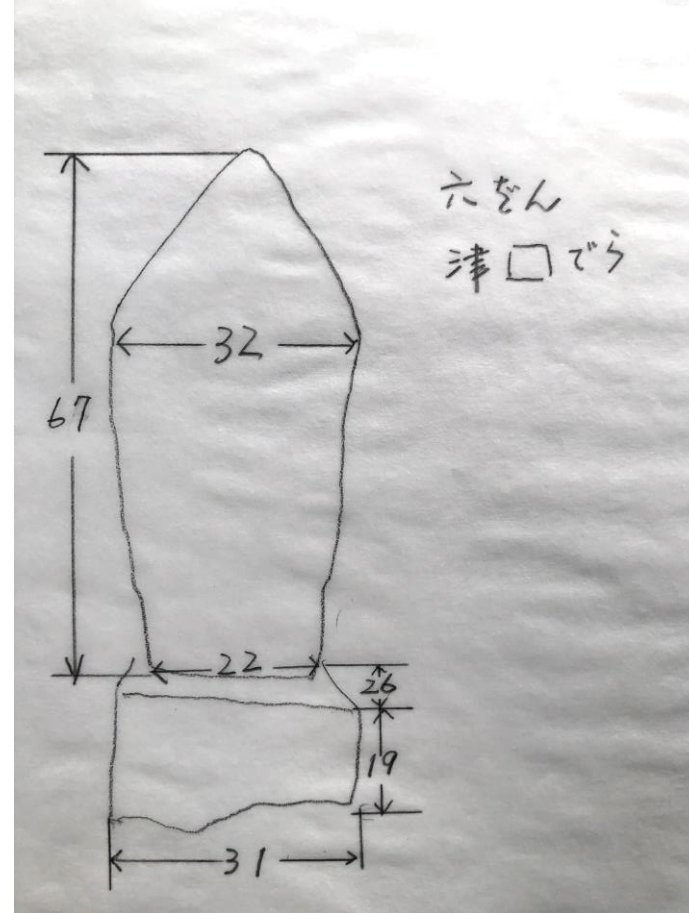 六ぞん
津口でら
32
67
22
26
19
31